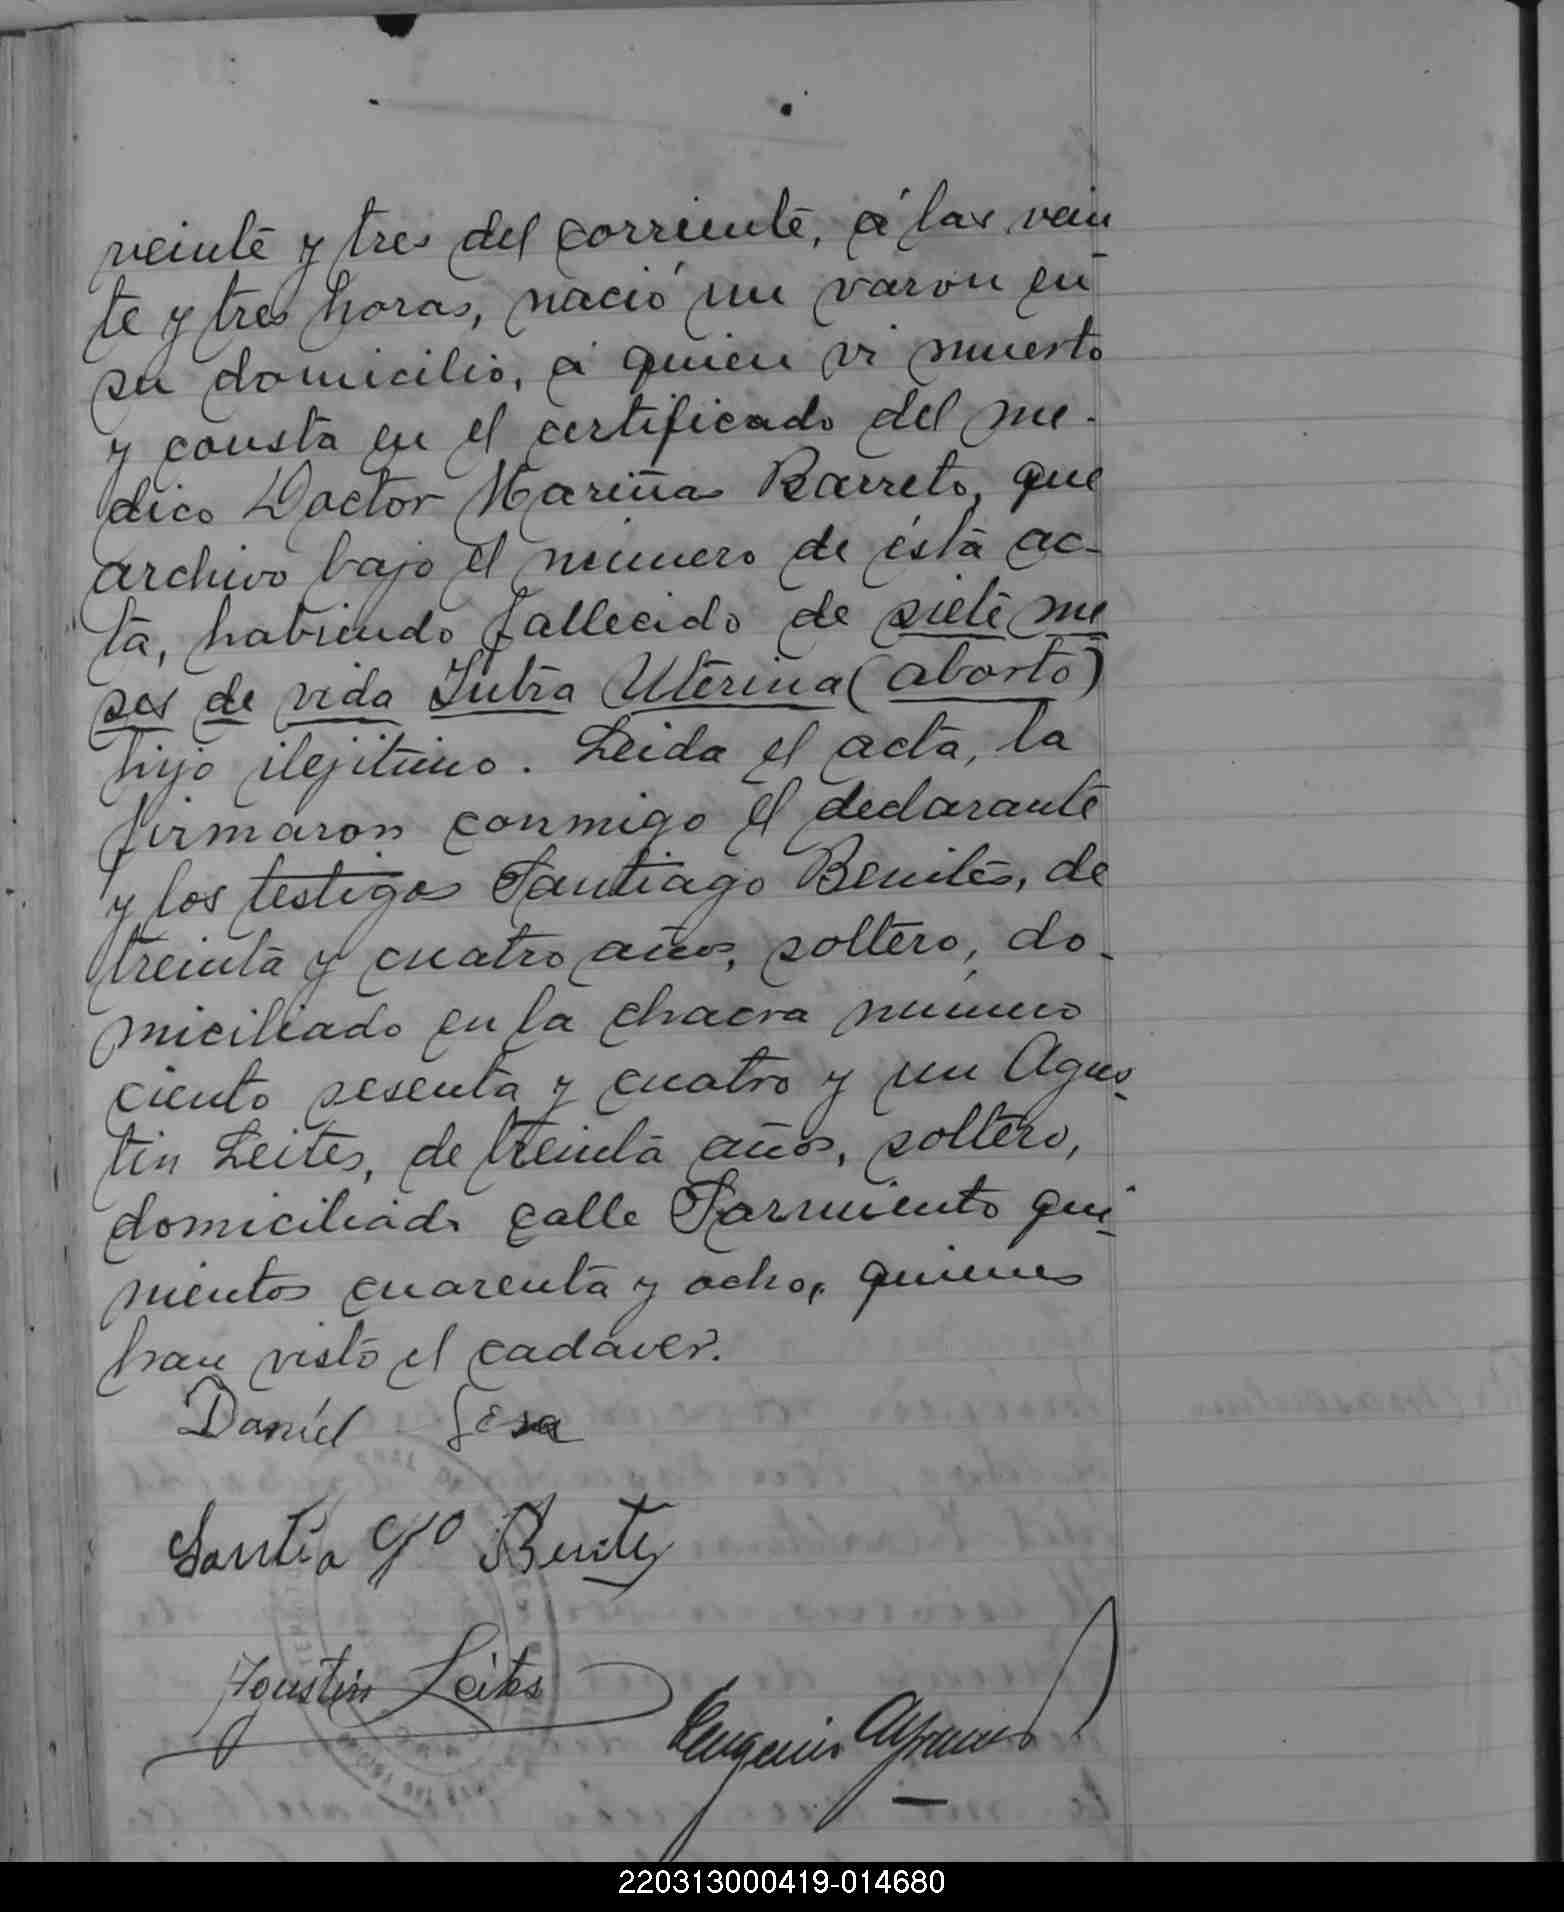 veinte y tres del corriente, á las vein
te y tres horas, nació un varon en
su domicilio, á quien vi muerto
y consta en el certificado del me-
dico Doctor Mariñas Barreto, que
archivo bajo el número de ésta ac-
ta, habiendo fallecido de siete me
ses de vida Intra Uterina (aborto)
hijo ilejitimo. Leida el acta, la
firmaron conmigo el declarante
y los testigos Santiago Benites, de
treinta y cuatro años, soltero, do-
miciliado en la chacra número
ciento sesenta y cuatro y un Agus-
tin Leites, de treinta años, soltero,
domiciliado calle Sarmiento qui-
nientos cuarenta y ocho, quienes
han visto el cadaver.
Daniel Sosa
Santiago Benitez
Agustin Leites
Eugenio
220313000419-014680